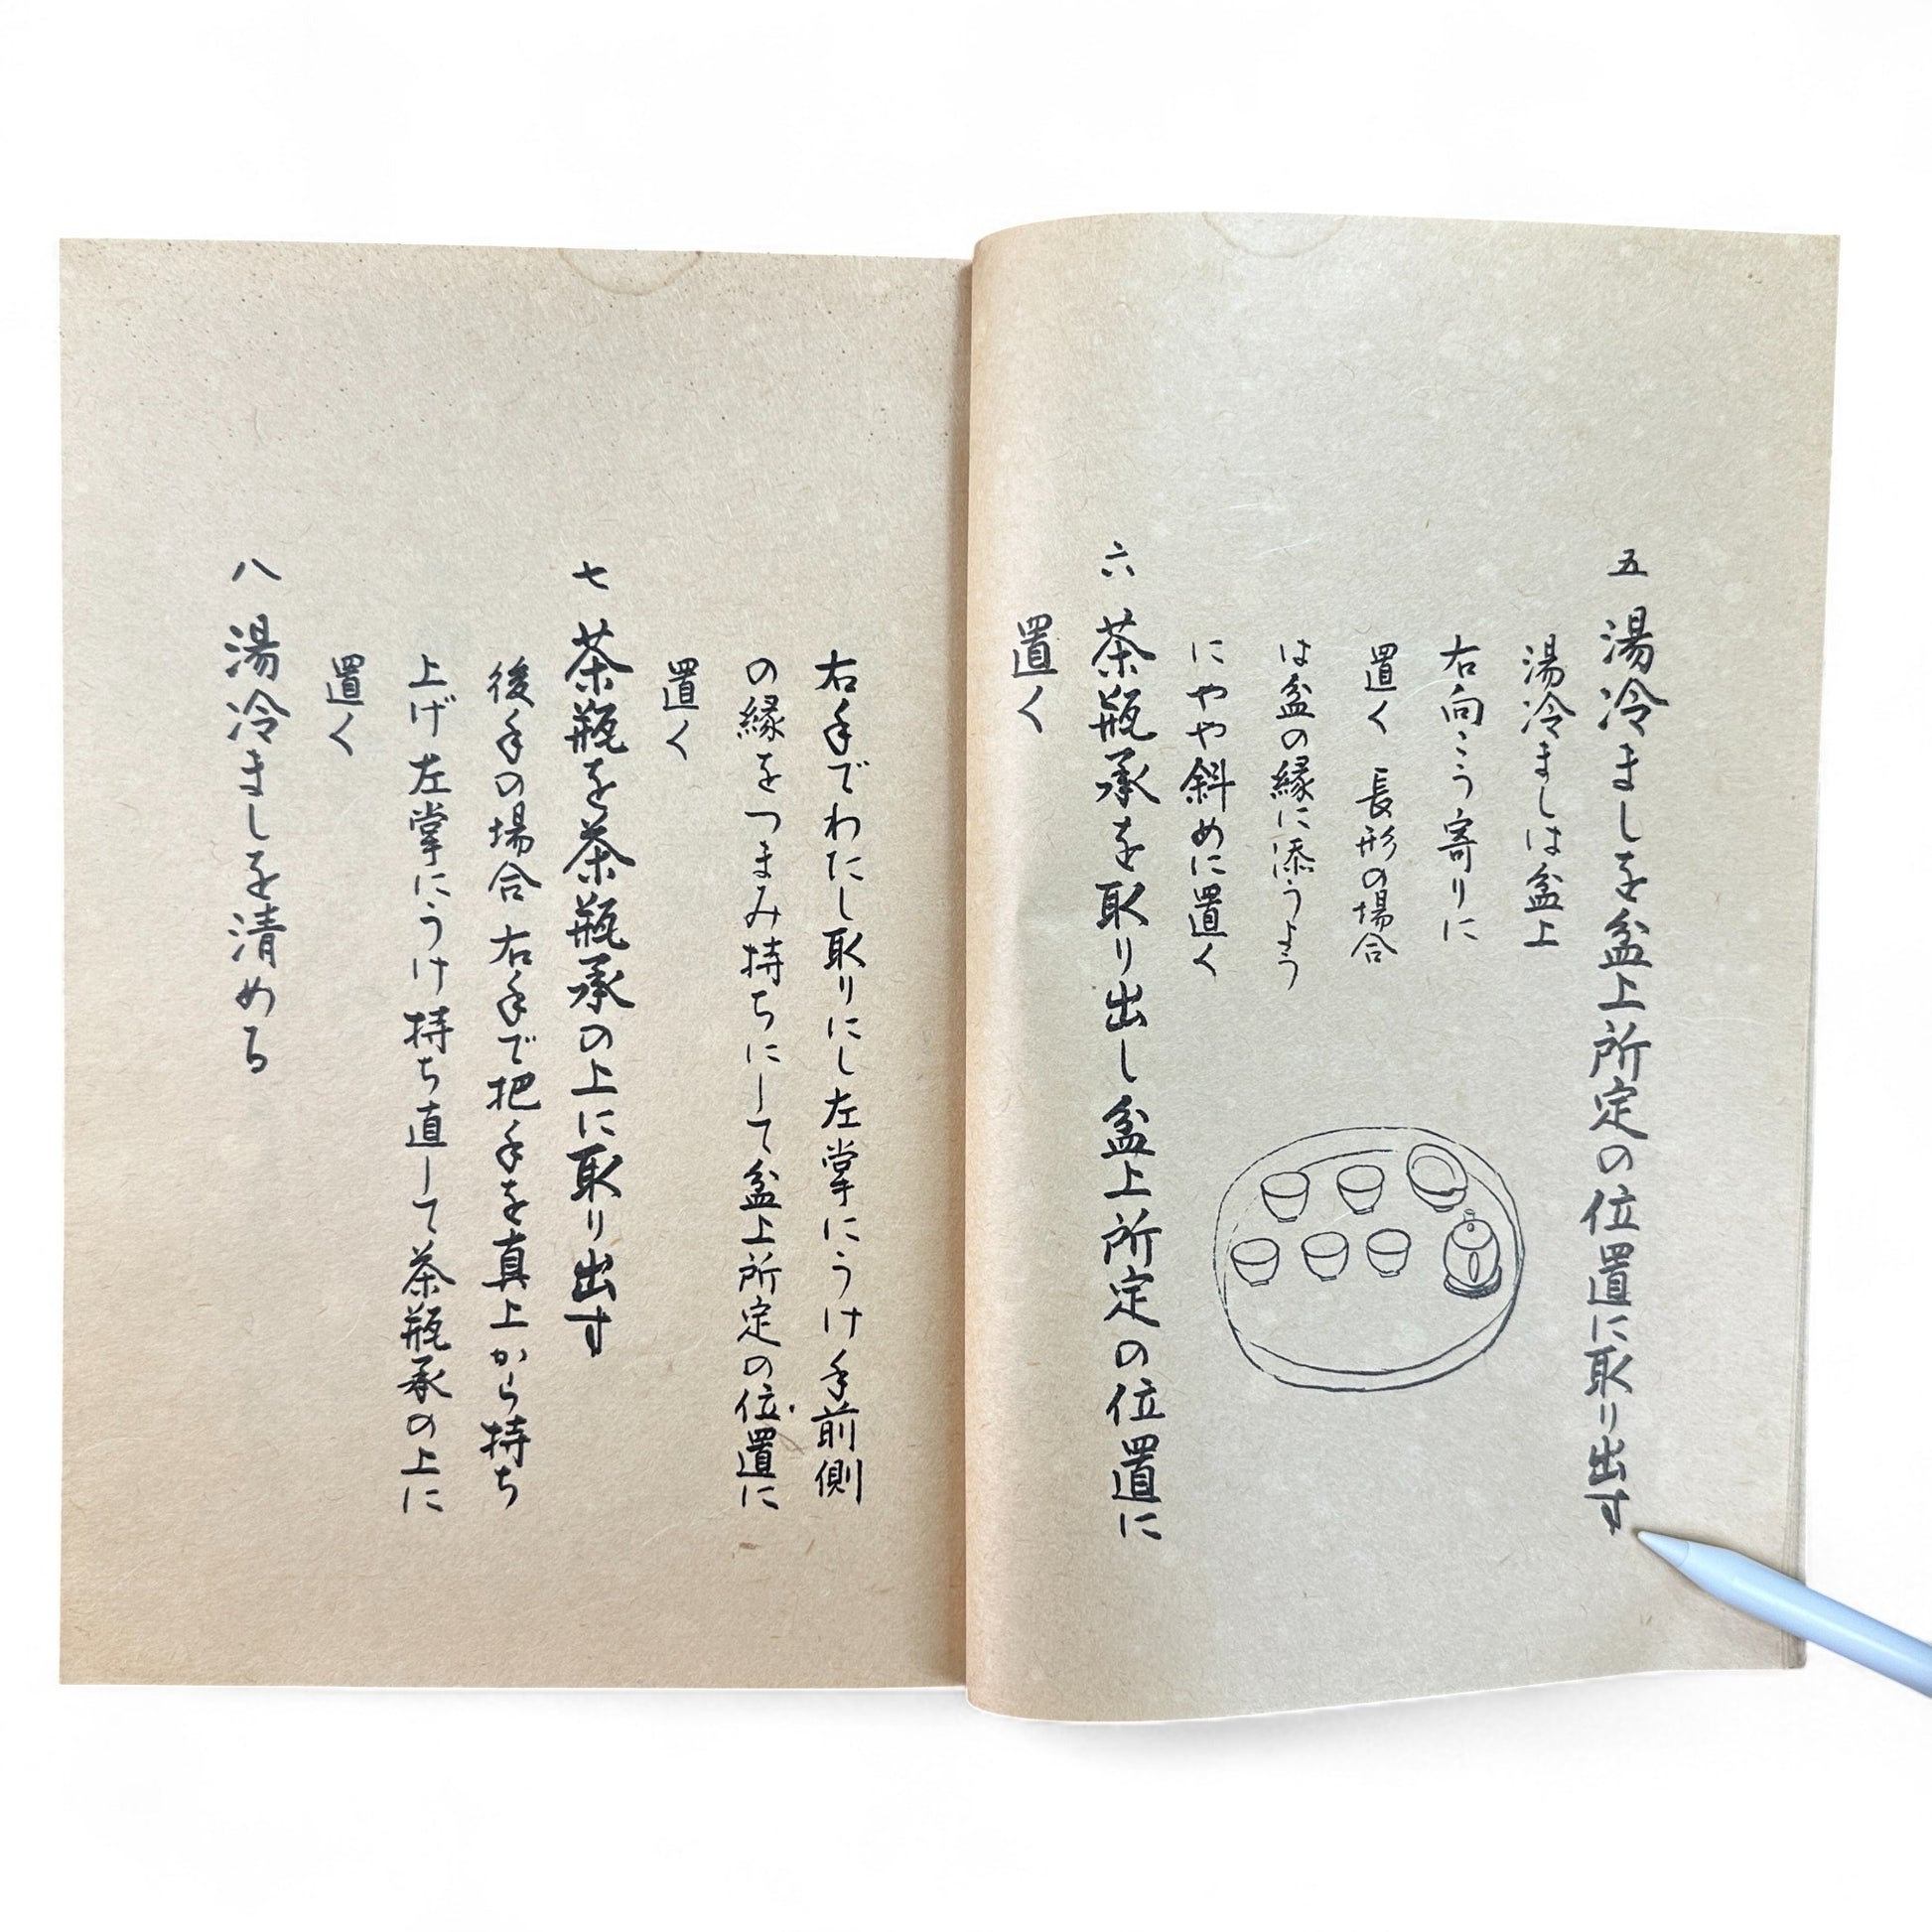 五 湯冷ましを盆上所定の位置に取り出す
湯冷ましは盆上
右向こう寄りに
置く 長形の場合
は盆の縁に添うよう
にやや斜めに置く
六 茶瓶承を取り出し盆上所定の位置に
置く
右手でわたし取りにし左掌にうけ手前側
の縁をつまみ持ちにして盆上所定の位置に
置く
七 茶瓶を茶瓶承の上に取り出す
後手の場合 右手で把手を真上から持ち
上げ左掌にうけ持ち直して茶瓶承の上に
置く
八 湯冷ましを清める